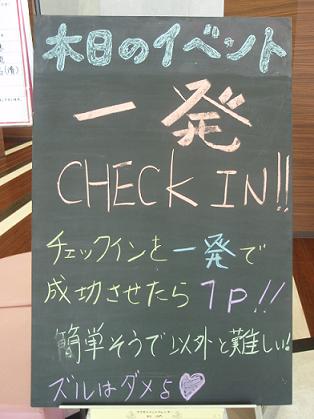 本日のイベント
一発
CHECK IN!!
チェックインを一発で
成功させたら1P!!
簡単そうで以外と難しい!
ズルはダメよ♡